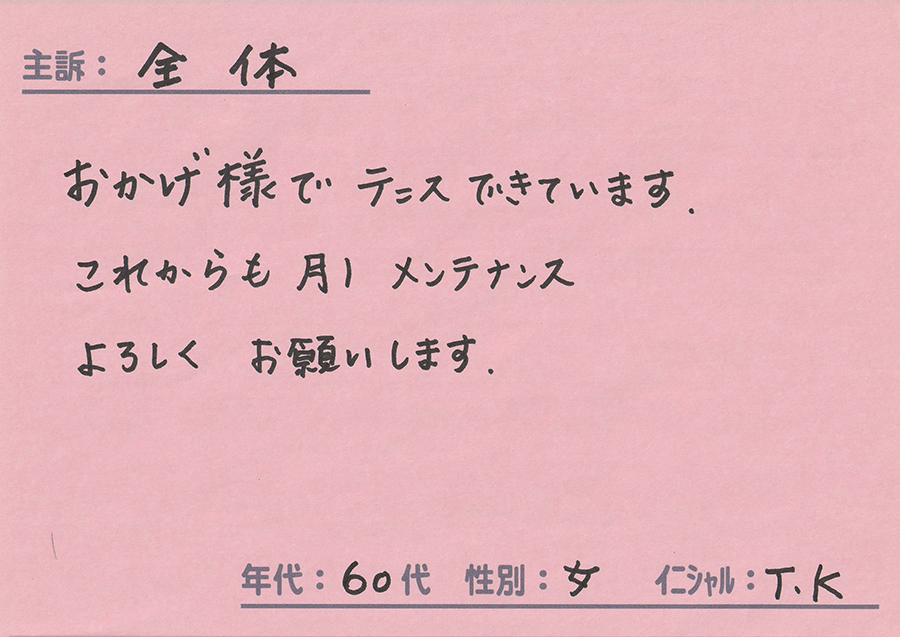 主訴： 全 体
おかげ様で テニス できています.
これからも 月1 メンテナンス
よろしく お願いします.
年代：60代 性別：女 ｲﾆｼｬﾙ：T.K